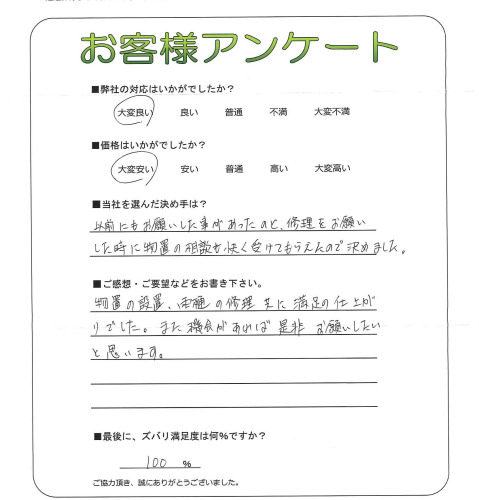 お客様アンケート
■弊社の対応はいかがでしたか？
大変良い 良い 普通 不満 大変不満
■価格はいかがでしたか？
大変安い 安い 普通 高い 大変高い
■当社を選んだ決め手は？
以前にもお願いした事があったのと、修理をお願い
した時に物置の相談も快く受けてもらえたので決めました。
■ご感想・ご要望などをお書き下さい。
物置の設置、雨樋の修理共に満足の仕上が
りでした。また機会があれば是非お願いしたい
と思います。
■最後に、ズバリ満足度は何%ですか？
100 %
ご協力頂き、誠にありがとうございました。